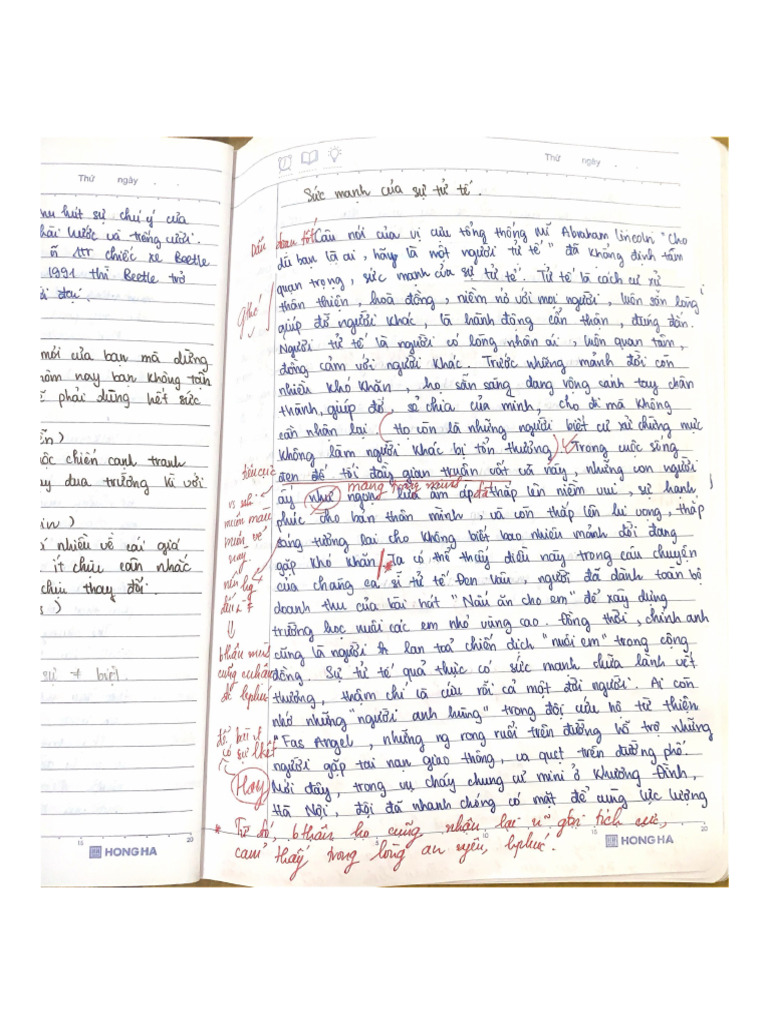 Thứ ngày
thu hút sự chú ý của
hài hước và tiếng cười.
chiếc xe Beetle
1991 thì Beetle trở
đại.
mới của bạn mà dừng
hôm nay bạn không tấn
phải dùng hết sức
ộc chiến cạnh tranh
ay đua trường kì với
nhiều về cái giá
ít chịu cân nhắc
chịu thay đổi.
sự ≠ biệt
15 20
HONG HA
Thứ ngày
Sức mạnh của sự tử tế.
Dẫn đoạn tốt
Câu nói của vị cựu tổng thống Mĩ Abraham Lincoln "Cho
dù bạn là ai, hãy là một người tử tế" đã khẳng định tầm
quan trọng, sức mạnh của sự tử tế. Tử tế là cách cư xử
thân thiện, hoà đồng, niềm nở với mọi người, luôn sẵn lòng
giúp đỡ người khác, là hành động cẩn thận, đúng đắn.
Người tử tế là người có lòng nhân ái, luôn quan tâm,
đồng cảm với người khác. Trước những mảnh đời còn
nhiều khó khăn, họ sẵn sàng dang rộng cánh tay chân
thành, giúp đỡ, sẻ chia của mình, cho đi mà không
cần nhận lại (Họ còn là những người biết cư xử chừng mực
không làm người khác bị tổn thương). Trong cuộc sống
đen đế tối đầy gian truân vất vả này, những con người
tiêu cực
mang trong mình
ấy như ngọn lửa ấm áp đã thắp lên niềm vui, sự hạnh
phúc cho bản thân mình, và còn thắp lên hi vọng, thắp
sáng tương lai cho không biết bao nhiêu mảnh đời đang
gặp khó khăn. Ta có thể thấy điều này trong câu chuyện
của chàng ca sĩ tử tế Đen Vâu, người đã dành toàn bộ
doanh thu của bài hát "Nấu ăn cho em" để xây dựng
trường học nuôi các em nhỏ vùng cao. Đồng thời, chính anh
cũng là người lan toả chiến dịch "nuôi em" trong cộng
đồng. Sự tử tế quả thực có sức mạnh chữa lành vết
thương, thậm chí là cứu rỗi cả một đời người. Ai còn
nhớ những "người anh hùng" trong đội cứu hộ từ thiện
"Fas Angel, những ng rong ruổi trên đường hỗ trợ những
người gặp tai nạn giao thông, va quẹt trên đường phố.
Mới đây, trong vụ cháy chung cư mini ở Khương Đình,
Hà Nội, đội đã nhanh chóng có mặt để cùng lực lượng
bthân mình
cũng
Hay
* Từ đó, bthân họ cũng nhận lại gtrị tích cực,
cảm thấy trong lòng an yên, hphúc.
10 15 20
HONG HA